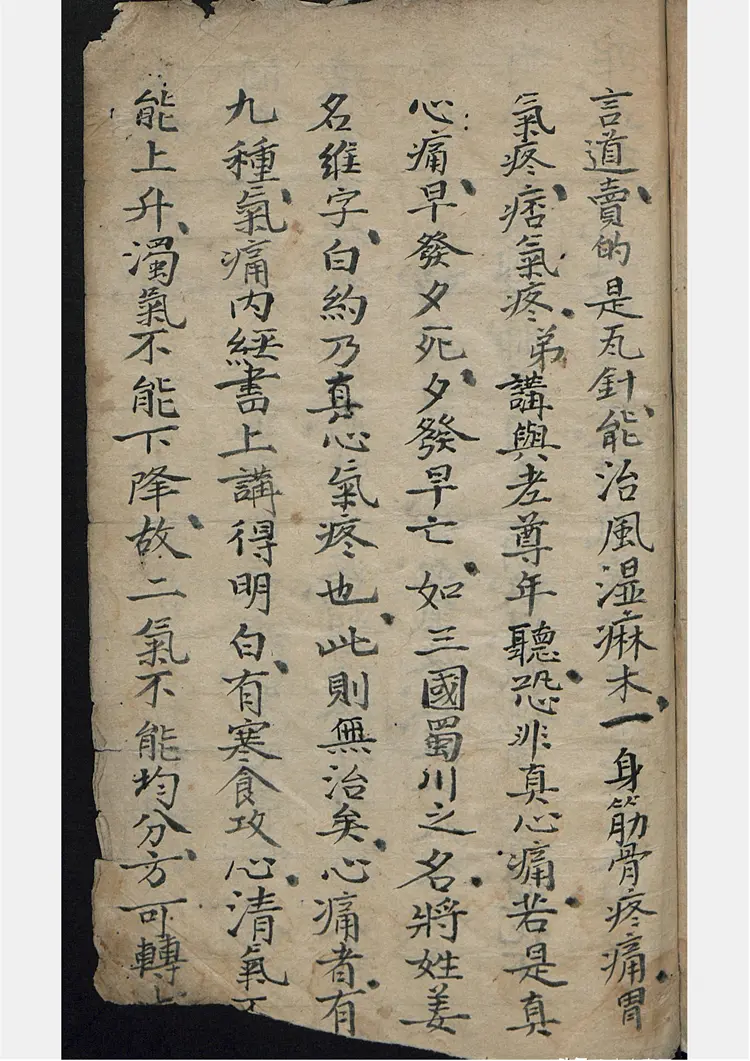 言道賣的是瓦針能治風湿痲木一身筋骨疼痛胃
氣疼痞氣疼弟講與老尊年聽恐非真心痛若是真
心痛早發夕死夕發早亡如三國蜀川之名將姓姜
名維字白約乃真心氣疼也此則無治矣心痛者有
九種氣痛内經書上講得明白有寒食攻心清氣不
能上升濁氣不能下降故二氣不能均分方可轉